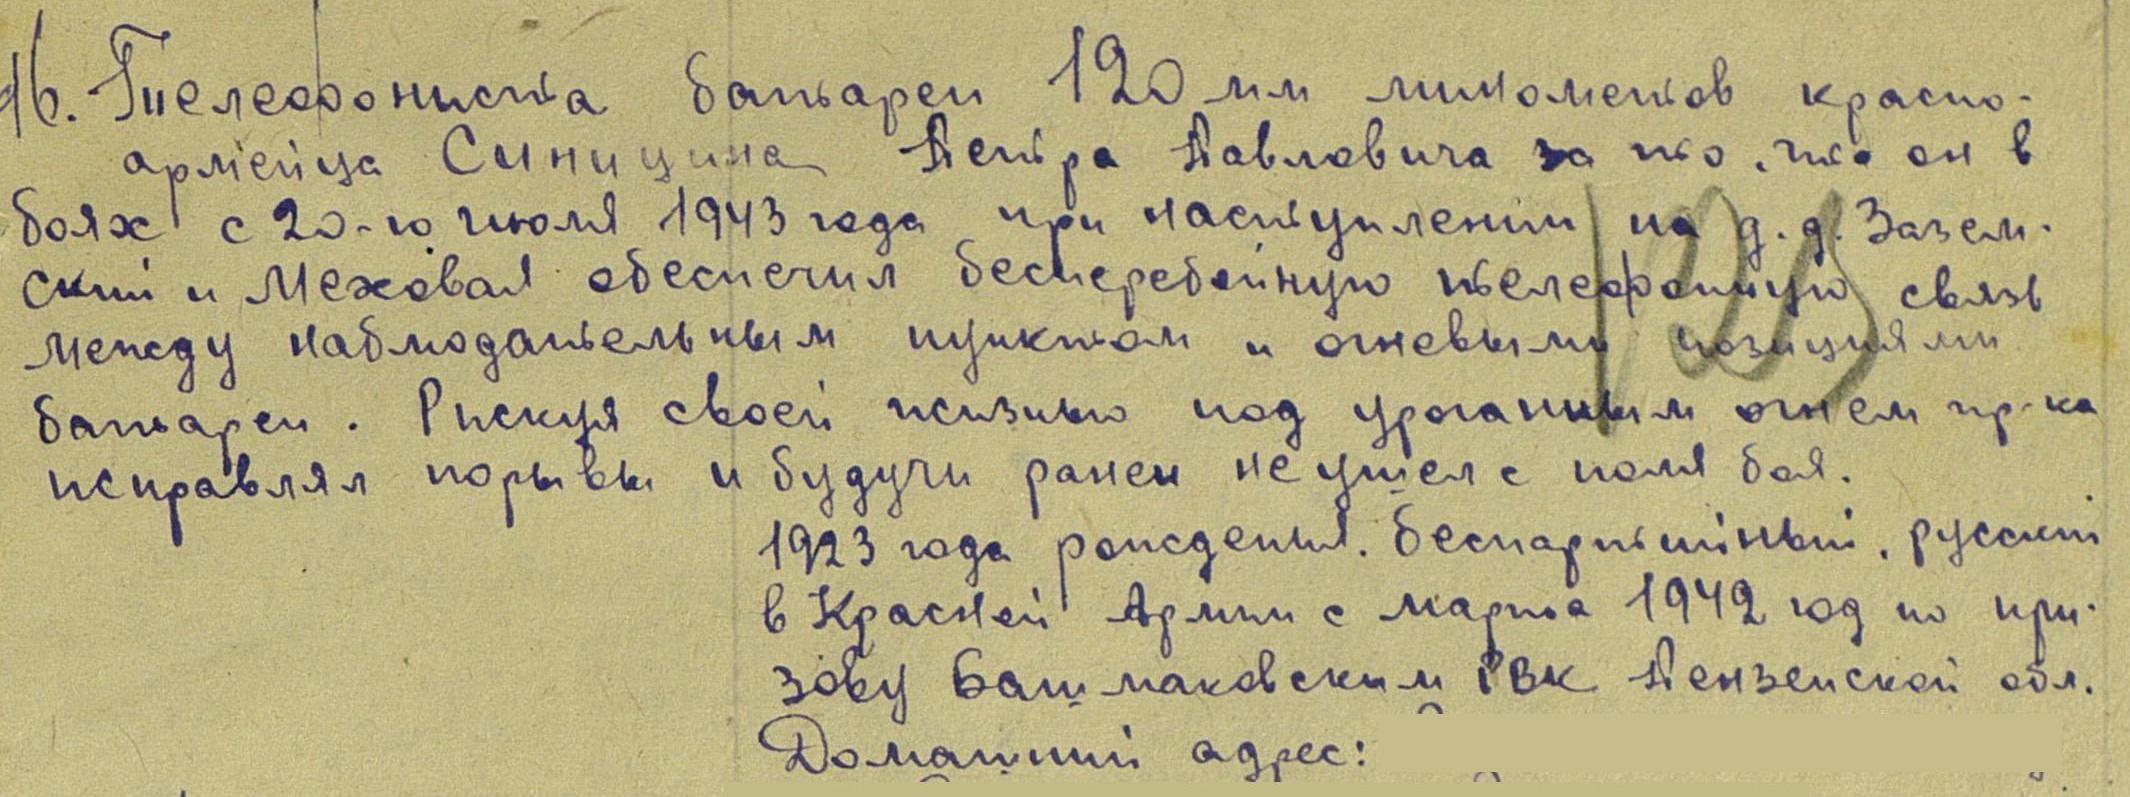 16. Телефониста батареи 120 мм минометов красно-
армейца Синицина Петра Павловича за то, что он в
боях с 20-го июля 1943 года при наступлении на д.д. Зазем-
ский и Меховая обеспечил бесперебойную телефонную связь
между наблюдательным пунктом и огневыми позициями
батареи. Рискуя своей жизнью под ураганным огнем пр-ка
исправлял порывы и будучи ранен не ушел с поля боя.
1923 года рождения. беспартийный, русский
в Красной Армии с марта 1942 год по при-
зову Башмаковским РВК Пензенской обл.
Домашний адрес: